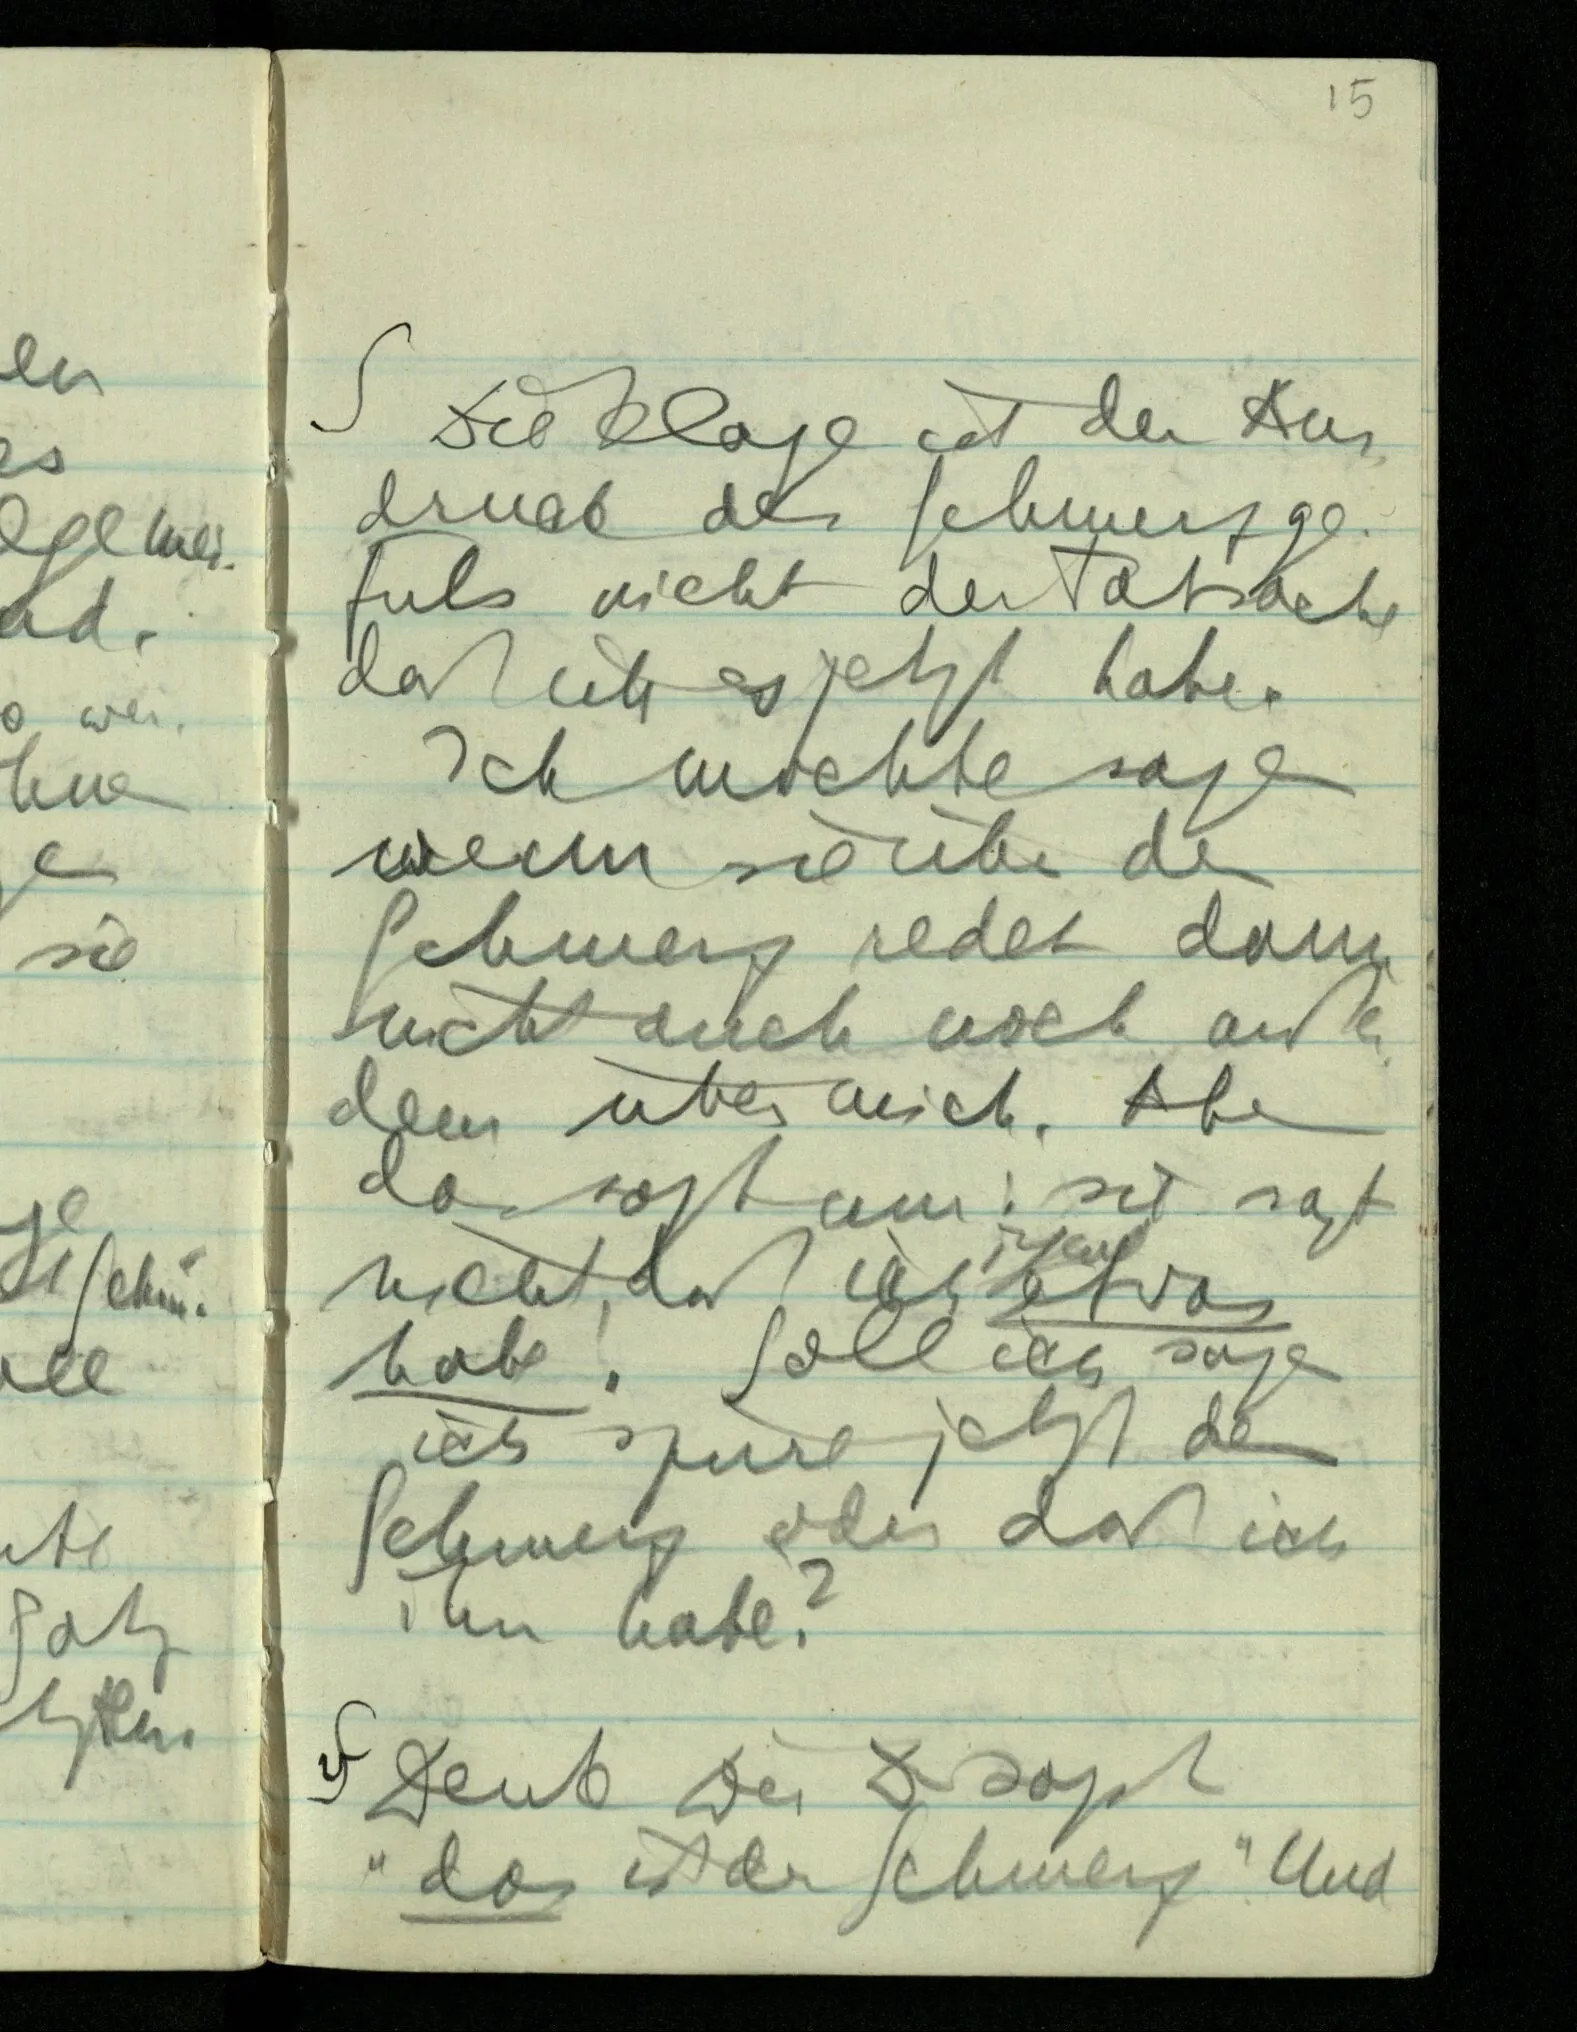 en
es
ad.
sie
15
∫ Die Klage ist der Aus-
druck des Schmerzge-
fuls nicht der Tatsache
daß ich es jetzt habe.
Ich mochte sagen
wenn sie über den
Schmerz redet dann
nicht auch noch außer-
dem über mich. Aber
da sagt man: sie sagt
irgend
nicht, daß ich etwas
habe! Soll ich sagen
ich spüre jetzt den
Schmerz oder daß ich
ihn habe?
∫ Denk Dir Du sagst
"das ist der Schmerz" Und